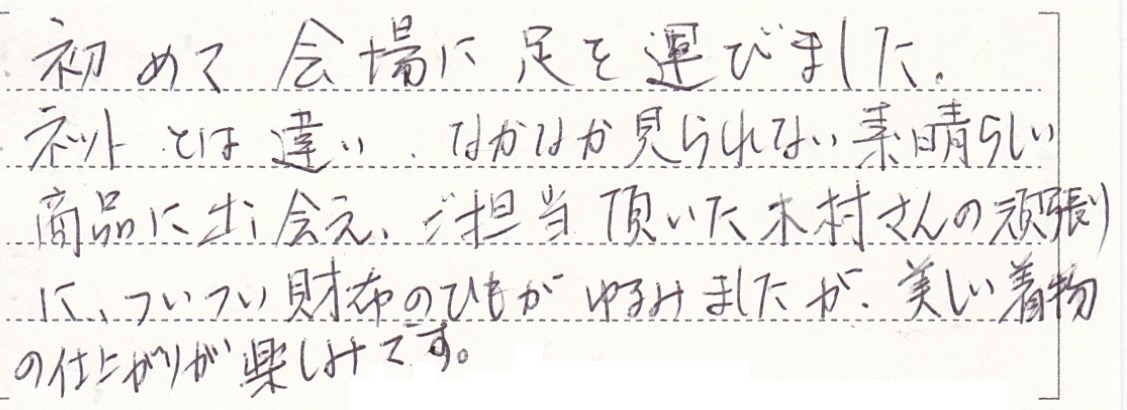 初めて会場に足を運びました。
ネットとは違い、なかなか見られない素晴らしい
商品に出会え、ご担当頂いた木村さんの頑張り
に、ついつい財布のひもがゆるみましたが、美しい着物
の仕上がりが楽しみです。